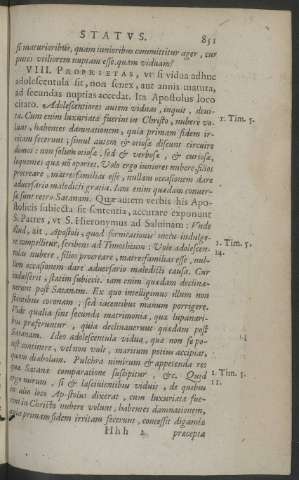 STATVS. 851
si maturioribus, quam iunioribus committitur ager, cur
putet viliorem nuptam esse, quam viduam?
VIII. PROPRIETAS, vt si vidua adhuc
adolescentula sit, non senex, aut annis matura,
ad secundas nuptias accedat. Ita Apostolus loco
citato. Adolescentiores autem viduas, inquit, deui-
ta. Cum enim luxuriatæ fuerint in Christo, nubere vo-
lunt, habentes damnationem, quia primam fidem ir-
ritam fecerunt; simul autem & otiosæ discunt circuire
domos: non solum otiosæ, sed & verbosæ, & curiosæ,
loquentes quæ nõ oportet. Volo ergo iuniores nubere, filios
procreare, matresfamilias esse, nullam occasionem dare
aduersario maledicti gratia. Iam enim quædam conuer-
sæ sunt retro Satanam. Quæ autem verbis his Apo-
stolicis subiecta sit sententia, accurate exponunt
S. Patres, vt S. Hieronymus ad Saluinam: Vnde
1. Tim. 5.
2. Tim. 5.
14.
nubere, filios procreare, matresfamilias esse, nul-
lam occasionem dare aduersario maledicti causa. Cur
statim subiecit. iam enim quædam declina-
uerunt post Satanam. Ex quo intelligimus illam non
coronam; sed iacentibus manum porrigere.
Vide qualia sint secunda matrimonia, quæ lupanari-
bus præferuntur, quia declinauerunt quædam post
Satanam. Ideo adolescentula vidua, quæ non se po-
test continere, vel non vult, maritum potius accipiat,
quam diabolum. Pulchra nimirum & appetenda res
quæ Satanæ comparatione suscipitur, &c. Quid
1. Tim. 5.
11.
in alio loco Apostolus dixerat, cum luxuriatæ fue-
rint in Christo nubere volunt, habentes damnationem,
quia primam fidem irritam fecerunt, concessit digamis
Hhh 2 præcepta